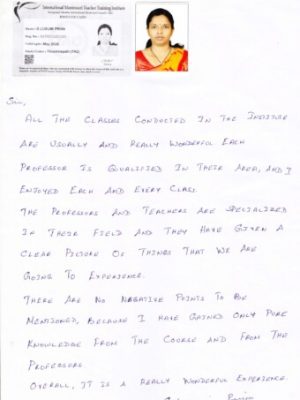 International Montessori Teacher Training Institute
Sir,
ALL THE CLASSES CONDUCTED IN THE INSTITUTE
ARE USUALLY AND REALLY WONDERFUL EACH
PROFESSOR IS QUALIFIED IN THEIR AREA, AND I
ENJOYED EACH AND EVERY CLASS.
THE PROFESSORS AND TEACHERS ARE SPECIALIZED
IN THEIR FIELD AND THEY HAVE GIVEN A
CLEAR PICTURE OF THINGS THAT WE ARE
GOING TO EXPERIENCE.
THERE ARE NO NEGATIVE POINTS TO BE
MENTIONED, BECAUSE I HAVE GAINED ONLY PURE
KNOWLEDGE FROM THE COURSE AND FROM THE
PROFESSORS.
OVERALL, IT IS A REALLY WONDERFUL EXPERIENCE.